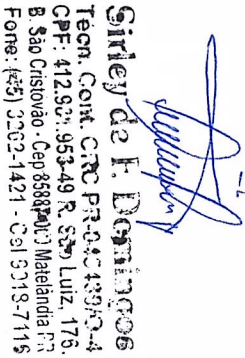 Sirley de F. Domingos
Técn. Cont. CRC PR-
CPF: 412.901.953-49 R. São Luiz, 176.
B. São Cristovão - Cep Matelândia PR
Fone: (45) 3262-1421 - Cel 9918-7116